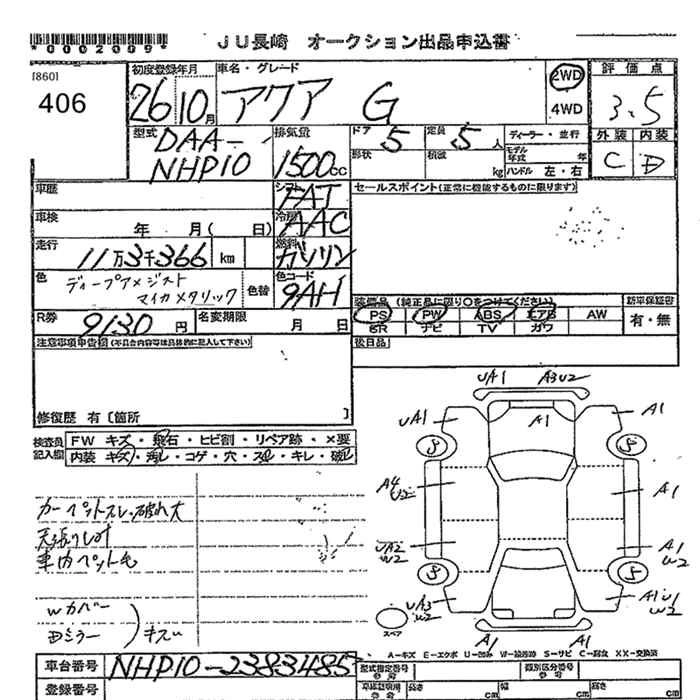 *0002009*
JU長崎 オークション出品申込書
[860]
406
初度登録年月
26 10月
車名・グレード
アクア G
2WD
4WD
評価点
3.5
外装 内装
C D
型式
DAA-
NHP10
排気量
1500cc
ドア
5
定員
5人
形状
積載
kg
ディーラー・並行
モデル年式 年
ハンドル 左・右
車歴
シフト
FAT
セールスポイント(正常に機能するものに限ります)
車検
年 月( 日)
冷房
AAC
走行
11万3千366 km
燃料
ガソリン
色
ディープアメジスト
マイカメタリック
色替
色コード
9AH
装備品(純正品に限り○をつけてください)
新車保証書
PS PW ABS エアB AW
SR ナビ TV カワ
有・無
R券
9130円
名変期限
月 日
後日品
注意事項申告欄(不具合内容等は具体的に記入して下さい)
修復歴 有〔箇所 〕
検査員記入欄
FW キズ・飛石・ヒビ割・リペア跡・×要
内装 キズ・汚レ・コゲ・穴・スレ・キレ・破レ
カーペットスレ・破れ大
天張りシミ
車内ペット毛
Wカバー
Dミラー
キズU
UA1 A3U2
UA1 A1 A1
A4
U2
A1
UA2
W2
A1
U2
UA3
W2
A1U1
W2
A1 A1
スペア
A-キズ E-エクボ U-凹み W-補修跡 S-サビ C-腐食 XX-交換済
車台番号
NHP10-2383485
登録番号
型式指定番号
参考
類別区分番号
参考
車庫証明用
参考
長さ cm
幅 cm
高さ cm